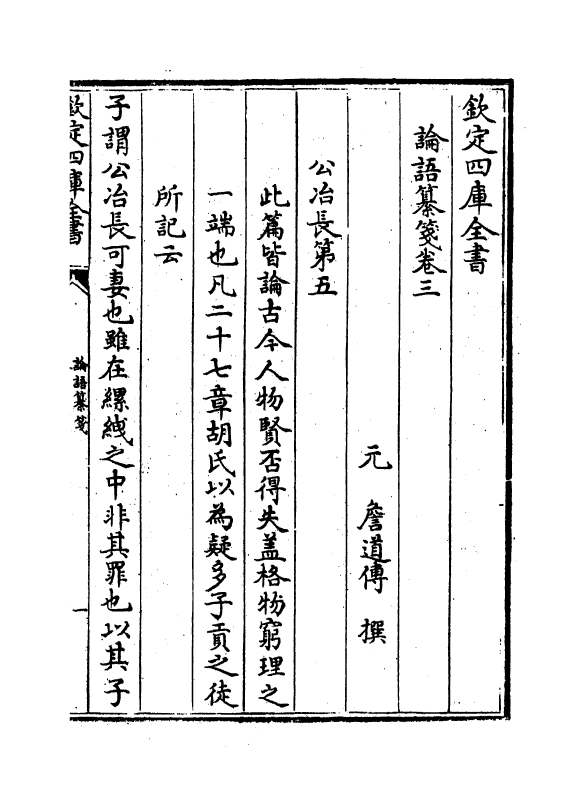 欽定四庫全書
論語纂箋卷三
元 詹道傳 撰
公冶長第五
此篇皆論古今人物賢否得失盖格物窮理之
一端也凡二十七章胡氏以為疑多子貢之徒
所記云
子謂公冶長可妻也雖在縲絏之中非其罪也以其子
欽定四庫全書
論語纂箋
一